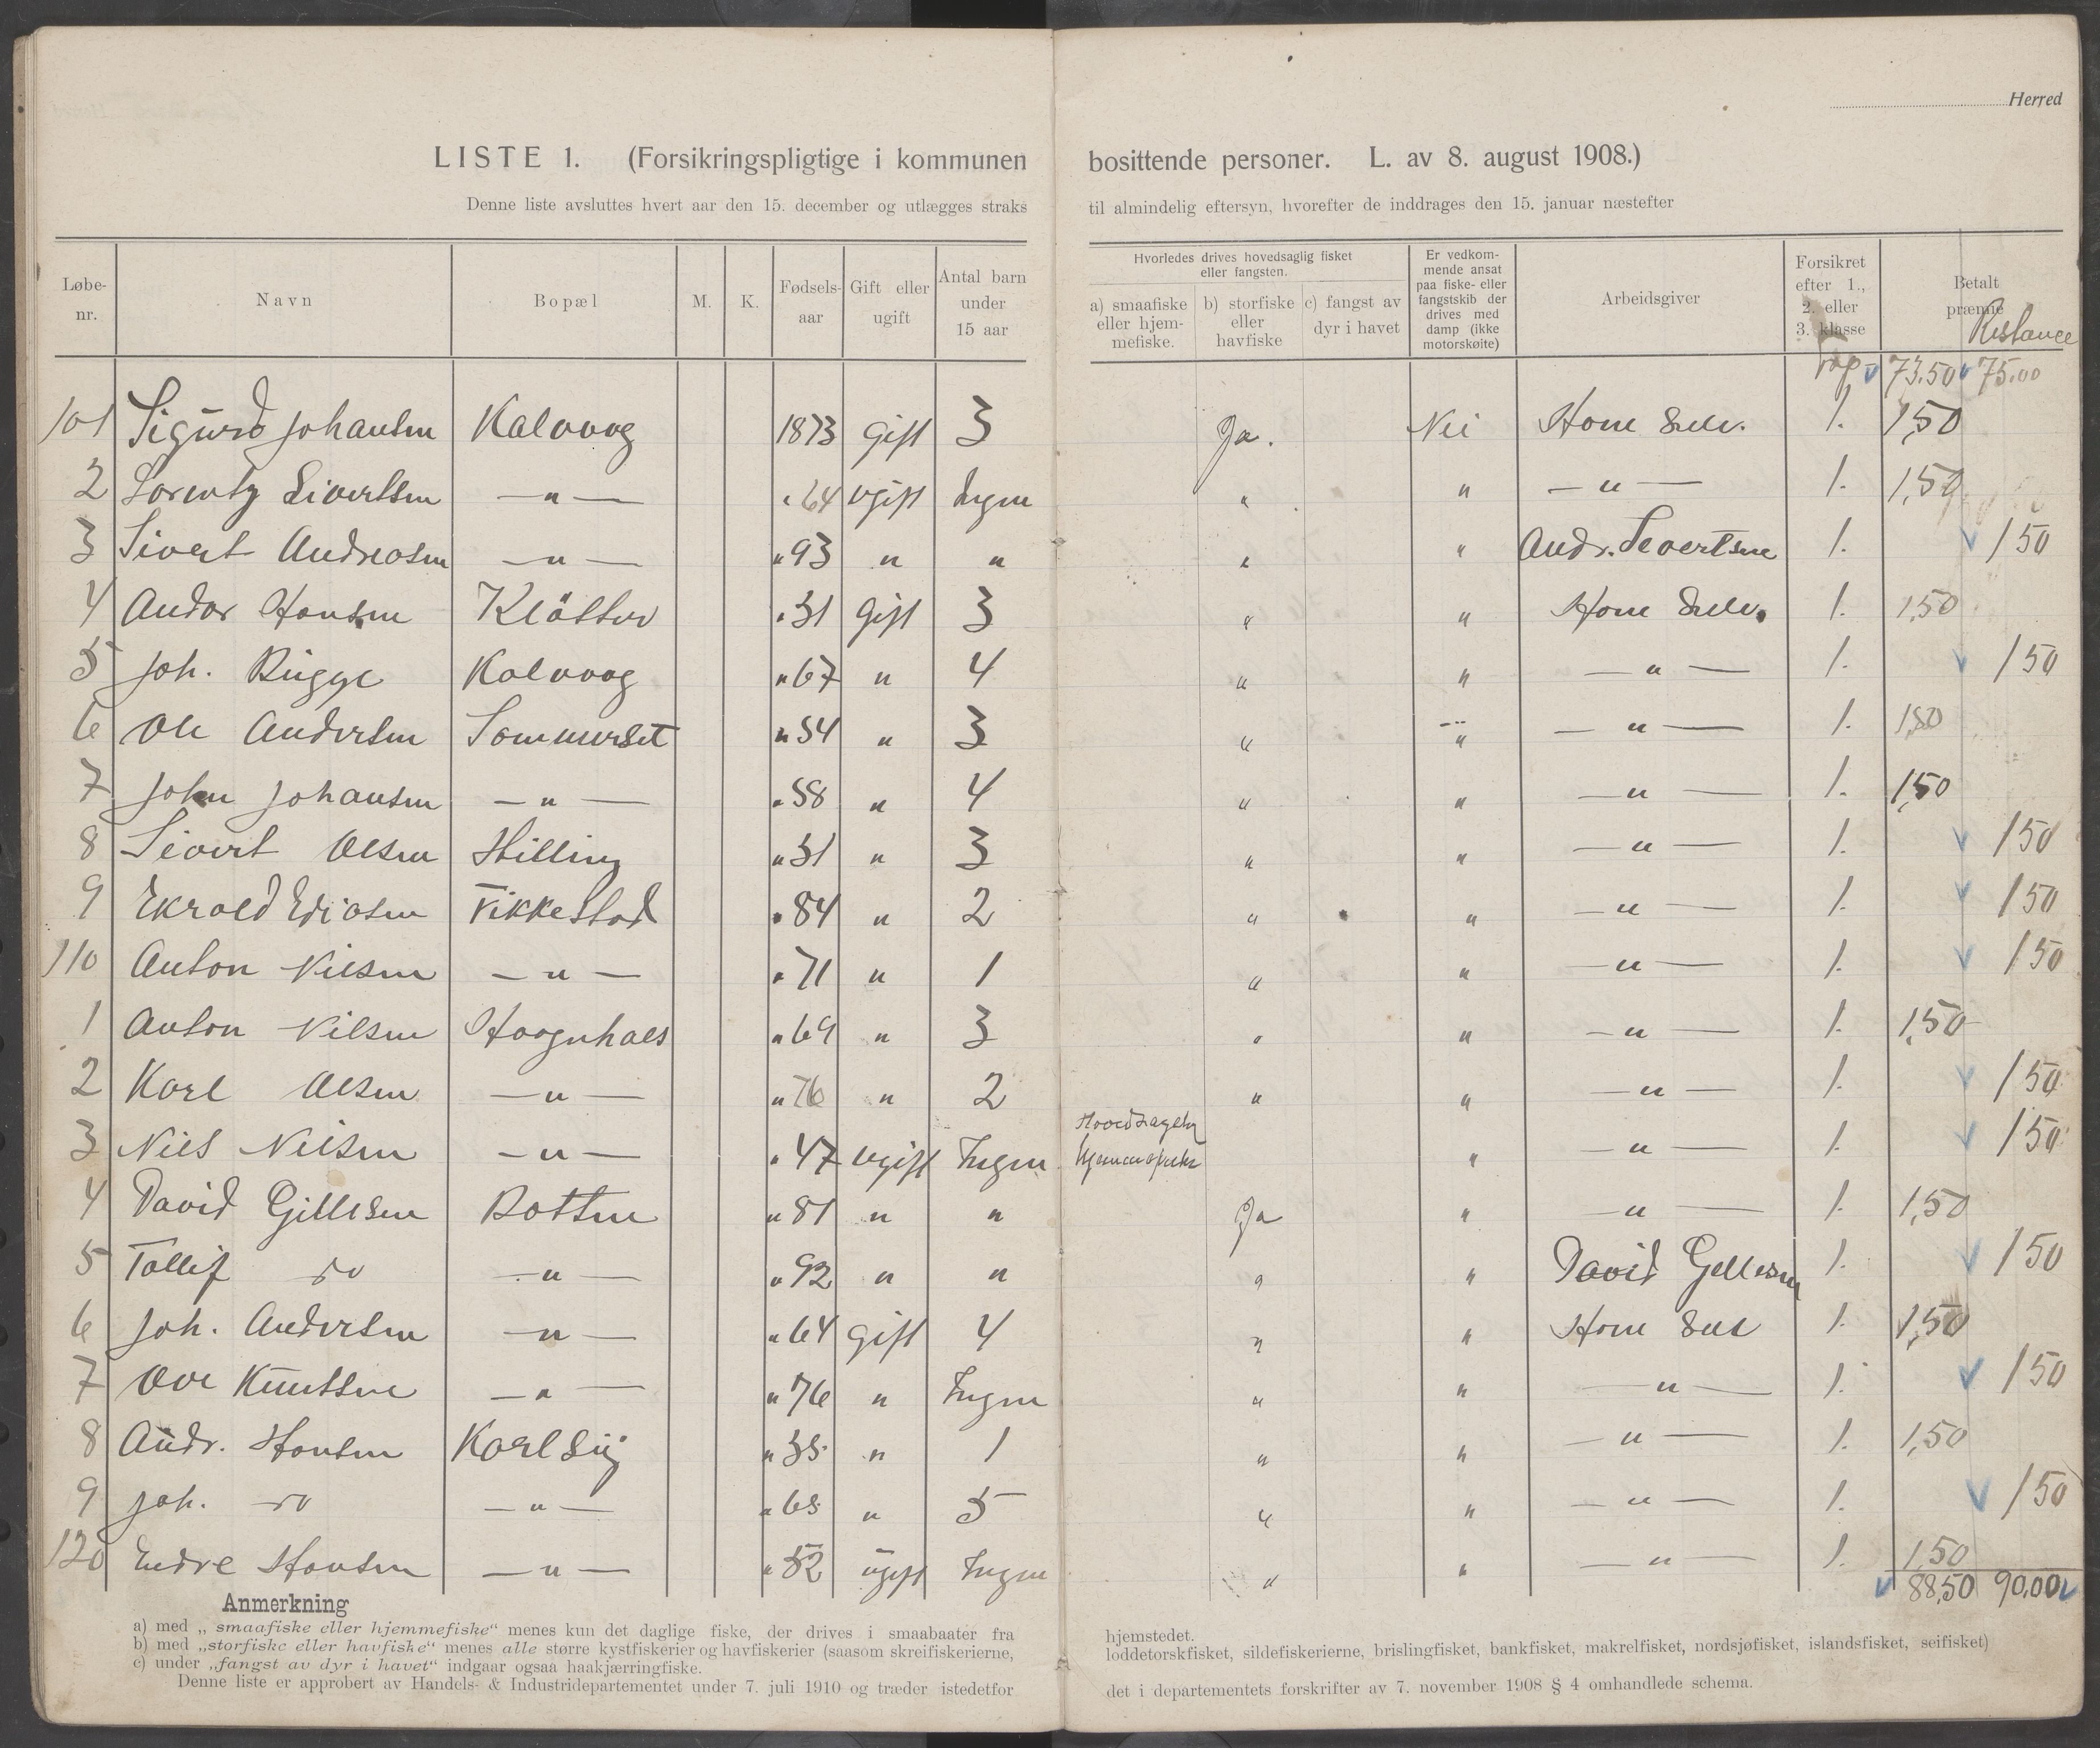 Herred
LISTE 1. (Forsikringspligtige i kommunen bosittende personer. L. av 8. august 1908.)
Denne liste avsluttes hvert aar den 15. december og utlægges straks til almindelig eftersyn, hvorefter de inddrages den 15. januar næstefter
Løbe-nr. Navn Bopæl M. K. Fødsels-aar Gift eller ugift Antal barn under 15 aar Hvorledes drives hovedsaglig fisket eller fangsten. a) smaafiske eller hjem-mefiske. b) storfiske eller havfiske c) fangst av dyr i havet Er vedkom-mende ansat paa fiske- eller fangstskib der drives med damp (ikke motorskøite) Arbeidsgiver Forsikret efter 1., 2. eller 3. klasse Betalt præmie Restance
73.50 75.00
101 Sigurd Johansen Kalvaag 1873 Gift 3 Ja. Nei Ham Selv. 1. 1,50
2 Lorentz Sivertsen — " — " 64 ugift Ingen " " — " — 1. 1,50
3 Sivert Andreasen — " — " 93 " " " " Andr. Severtsen 1. 1 50
4 Andor Hansen " 31 Gift 3 " " Ham Selv. 1. 1,50
5 Joh. Bugge Kalvaag " 67 " 4 " " — " — 1. 1 50
6 Ole Andersen Sommerset " 54 " 3 " " — " — 1. 1,50
7 John Johansen — " — " 58 " 4 " " — " — 1. 1,50
8 Sivert Olsen Helling " 31 " 3 " " — " — 1. 1 50
9 Ediasen Fikkestad " 84 " 2 " " — " — 1. 1 50
110 Anton Nilsen — " — " 71 " 1 " " — " — 1. 1 50
1 Anton Nilsen Haagnhals " 69 " 3 " " — " — 1. 1,50
2 Karl Olsen — " — " 76 " 2 " " — " — 1. 1 50
3 Nils Nilsen — " — " 47 ugift Ingen Hovedsagelig hjemmefiske " — " — 1. 1 50
4 David Gillesen Botten " 81 " " Ja " — " — 1. 1,50
5 Tollif do — " — " 92 " " " " David Gellesen 1. 1 50
6 Joh. Andersen — " — " 64 gift 4 " " Ham Selv 1. 1,50
7 Ove Knutsen — " — " 76 " Ingen " " — " — 1. 1 50
8 Andr. Hansen Karlsøy " 35 " 1 " " — " — 1. 1,50
9 Joh. do — " — " 68 " 5 " " — " — 1. 1 50
120 Endre Hansen — " — " 82 ugift Ingen " " — " — 1. 1,50
88,50 90.00
Anmerkning
a) med „smaafiske eller hjemmefiske“ menes kun det daglige fiske, der drives i smaabaater fra hjemstedet.
b) med „storfiske eller havfiske“ menes alle større kystfiskerier og havfiskerier (saasom skreifiskerierne, loddetorskfisket, sildefiskerierne, brislingfisket, bankfisket, makrelfisket, nordsjøfisket, islandsfisket, seifisket)
c) under „fangst av dyr i havet“ indgaar ogsaa haakjærringfiske.
Denne liste er approbert av Handels- & Industridepartementet under 7. juli 1910 og træder istedetfor det i departementets forskrifter av 7. november 1908 § 4 omhandlede schema.